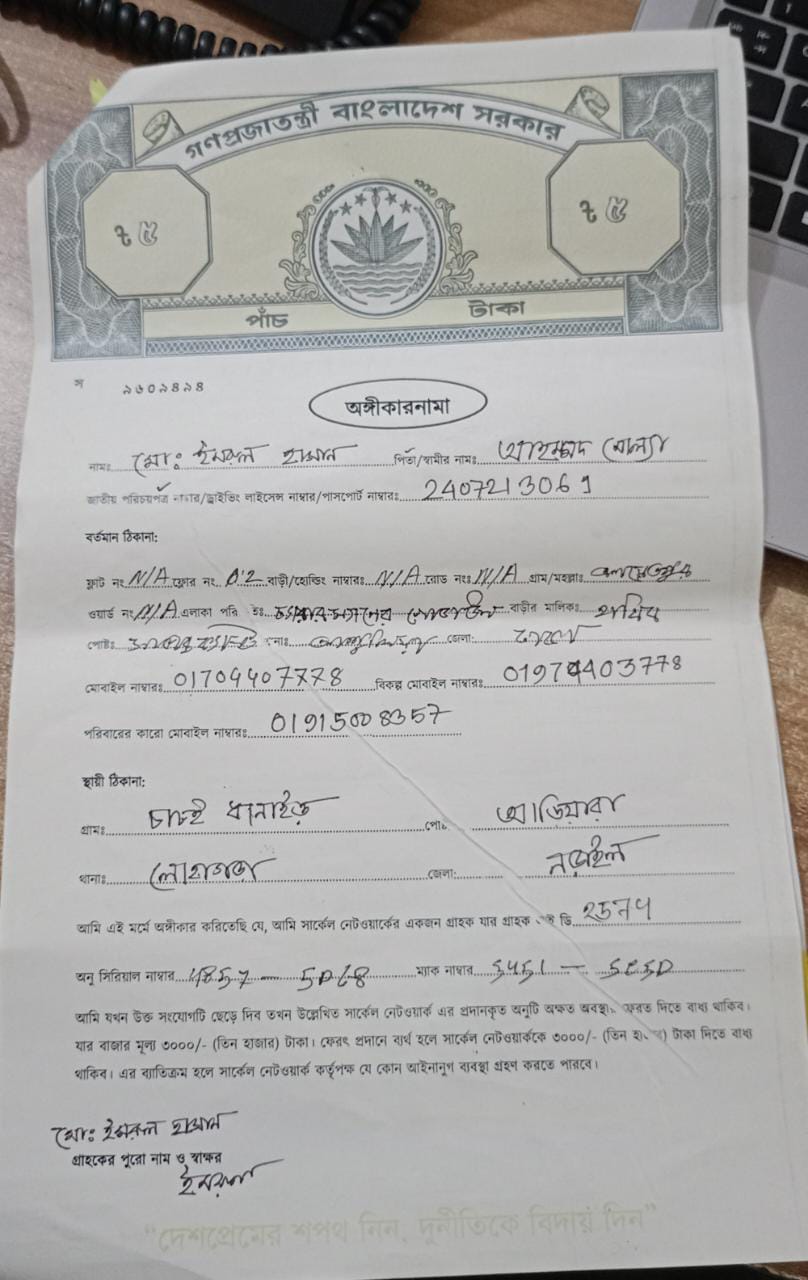 গণপ্রজাতন্ত্রী বাংলাদেশ সরকার
৳ ৫ ৳ ৫
পাঁচ টাকা
স ৯৬০৯৪৯৪
অঙ্গীকারনামা
নামঃ মোঃ ইমরুল হাসান পিতা/স্বামীর নামঃ মোল্যা
জাতীয় পরিচয়পত্র নাম্বার/ড্রাইভিং লাইসেন্স নাম্বার/পাসপোর্ট নাম্বারঃ 2407213069
বর্তমান ঠিকানা:
ফ্লাট নং N/A ফ্লোর নং. 0'2 বাড়ী/হোল্ডিং নাম্বারঃ N/A রোড নংঃ N/A গ্রাম/মহল্লাঃ
ওয়ার্ড নং N/A এলাকা পরি বাড়ীর মালিকঃ হাবিব
পোষ্টঃ জেলা: ঢাকা
মোবাইল নাম্বারঃ 01704407778 বিকল্প মোবাইল নাম্বারঃ 01974403778
পরিবারের কারো মোবাইল নাম্বারঃ 01915008357
স্থায়ী ঠিকানা:
গ্রামঃ চাচই ধানাইড় পোঃ আড়িয়ারা
থানাঃ লোহাগড়া জেলা: নড়াইল
আমি এই মর্মে অঙ্গীকার করিতেছি যে, আমি সার্কেল নেটওয়ার্কের একজন গ্রাহক যার গ্রাহক ডি
অনু সিরিয়াল নাম্বার ম্যাক নাম্বার
আমি যখন উক্ত সংযোগটি ছেড়ে দিব তখন উল্লেখিত সার্কেল নেটওয়ার্ক এর প্রদানকৃত অনুটি অক্ষত অবস্থা ফেরত দিতে বাধ্য থাকিব।
যার বাজার মূল্য ৩০০০/- (তিন হাজার) টাকা। ফেরৎ প্রদানে ব্যর্থ হলে সার্কেল নেটওয়ার্ককে ৩০০০/- (তিন টাকা দিতে বাধ্য
থাকিব। এর ব্যতিক্রম হলে সার্কেল নেটওয়ার্ক কর্তৃপক্ষ যে কোন আইনানুগ ব্যবস্থা গ্রহণ করতে পারবে।
মোঃ ইমরুল হাসান
গ্রাহকের পুরো নাম ও স্বাক্ষর
ইমরুল
“দেশপ্রেমের শপথ নিন, দুর্নীতিকে বিদায় দিন”